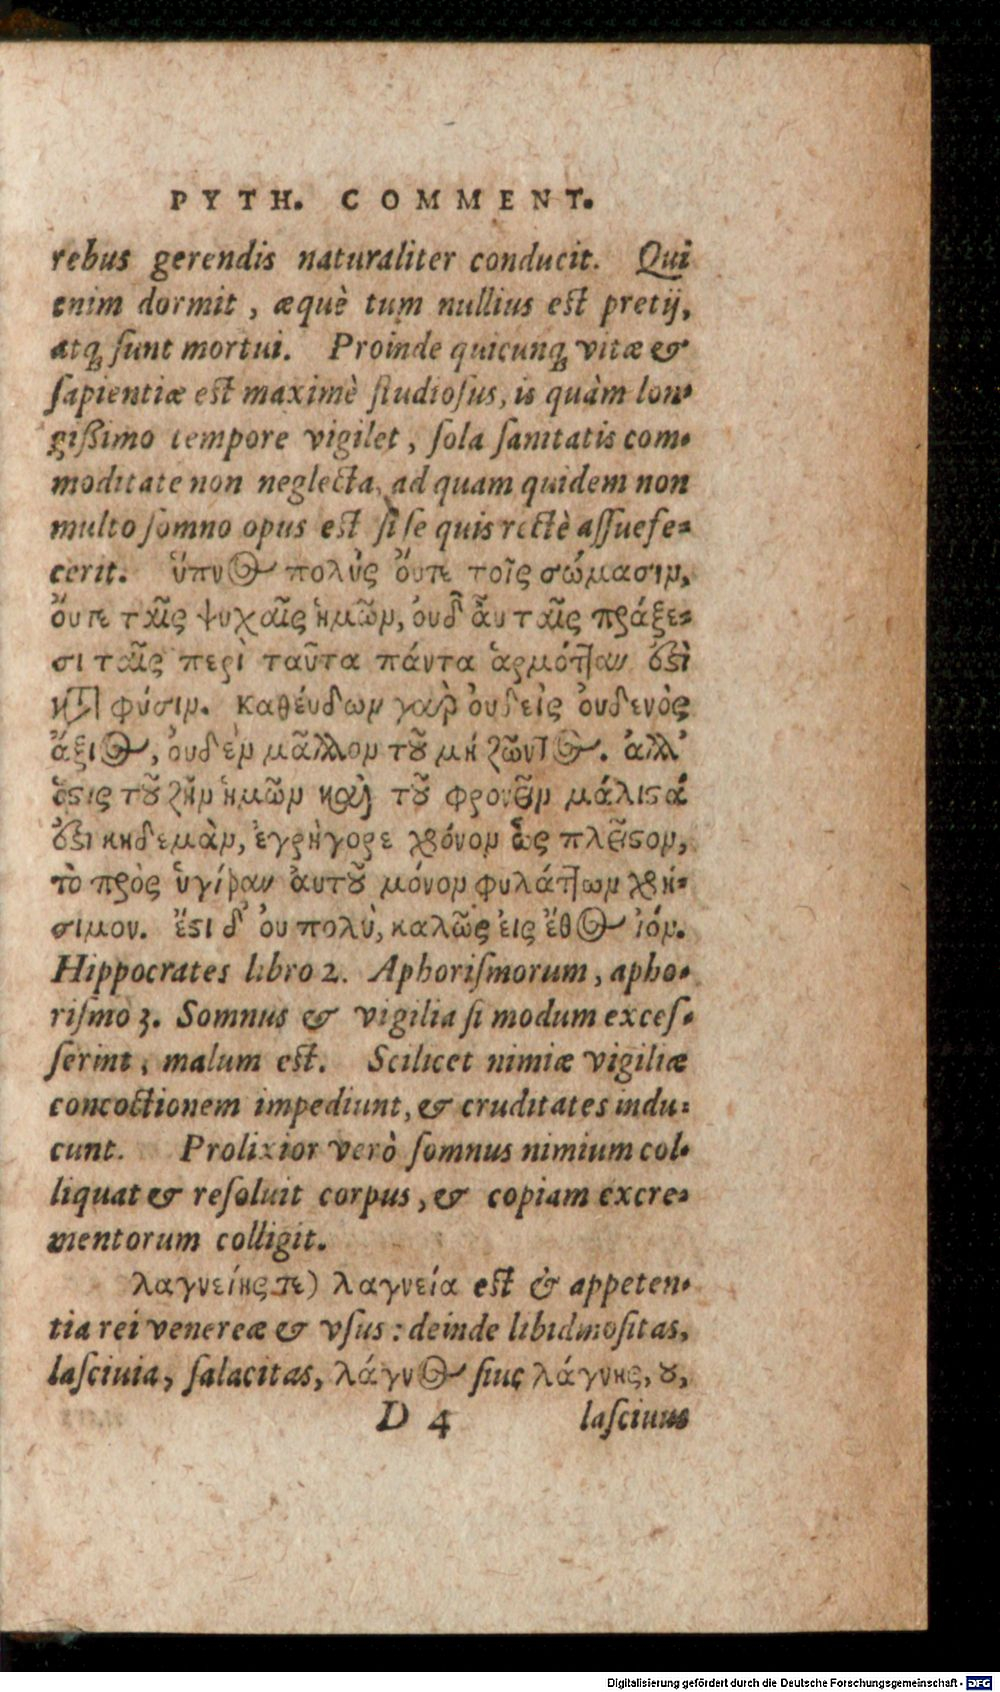 PYTH. COMMENT.
rebus gerendis naturaliter conducit. Qui
enim dormit, æquè tum nullius est pretij,
atq; ſunt mortui. Proinde quicunq; vitæ &
ſapientiæ est maximè ſtudioſus, is quàm lon-
gißimo tempore vigilet, ſola ſanitatis com-
moditate non neglecta, ad quam quidem non
multo ſomno opus est ſi ſe quis rectè aſſuefe-
cerit. ὕπνος πολὺς ὄυτε τοῖς σώμασιν,
ὄυτε ταῖς ψυχαῖς ἡμῶν, ὀυδ᾽ ἂυ ταῖς πράξε-
σι ταῖς περὶ ταῦτα πάντα ἁρμόττων ἐστὶ
κτ̃ φύσιν. καθέυδων γὰρ ὀυδεὶς ὀυδενὸς
ἄξιος, ὀυδὲν μᾶλλον τοῦ μὴ ζῶντος. ἀλλ᾽
ὅστις τοῦ ζῆν ἡμῶν καὶ τοῦ φρονεῖν μάλιστά
ἐστι κηδεμὼν, ἐγρήγορε χρόνον ὡς πλεῖστον,
τὸ πρὸς ὑγίειαν ἀυτοῦ μόνον φυλάττων χρή-
σιμον. ἔστι δ᾽ ὀυ πολὺ, καλῶς ἐις ἔθος ἰόν.
Hippocrates libro 2. Aphoriſmorum, apho-
riſmo 3. Somnus & vigilia ſi modum exceſ-
ſerint, malum est. Scilicet nimiæ vigiliæ
concoctionem impediunt, & cruditates indu-
cunt. Prolixior verò ſomnus nimium col-
liquat & reſoluit corpus, & copiam excre-
mentorum colligit.
λαγνείης τε) λαγνεία est & appeten-
tia rei venereæ & vſus: deinde libidinoſitas,
laſciuia, ſalacitas, λάγνος ſiue λάγνης, ου,
D 4 laſciuus
Digitalisierung gefördert durch die Deutsche Forschungsgemeinschaft - DFG